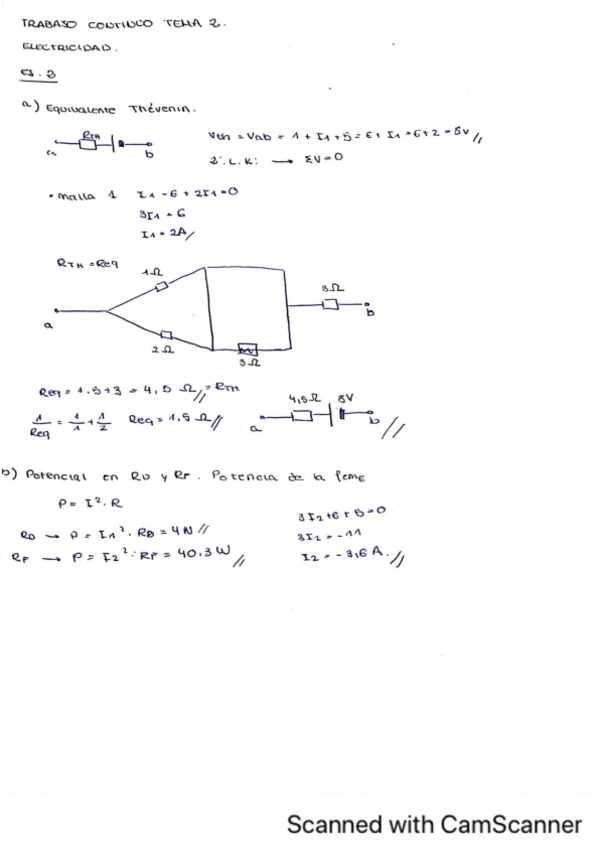 TRABAJO CONTINUO TEMA 2.
ELECTRICIDAD.
EJ. 3
a) Equivalente Thévenin.
RTH
a
b
Vth = Vab = 1 + I1 + 5 = 6 + I1 = 6 + 2 = 8V //
2ª L.K: → ΣV=0
• Malla 1 I1 - 6 + 2I1 = 0
3I1 = 6
I1 = 2A //
RTH = Req
1Ω
3Ω
a
b
2Ω
3Ω
Req = 1.5 + 3 = 4,5 Ω // = RTH
4,5Ω 8V
1/Req = 1/1 + 1/2 Req = 1.5 Ω //
a
b //
b) Potencial en RD y RF. Potencia de la
P = I². R
3I2 + 6 + 5 = 0
RD → P = I1². RD = 4W //
3I2 = -11
RF → P = I2². RF = 40.3 W //
I2 = -3,6 A. //
Scanned with CamScanner